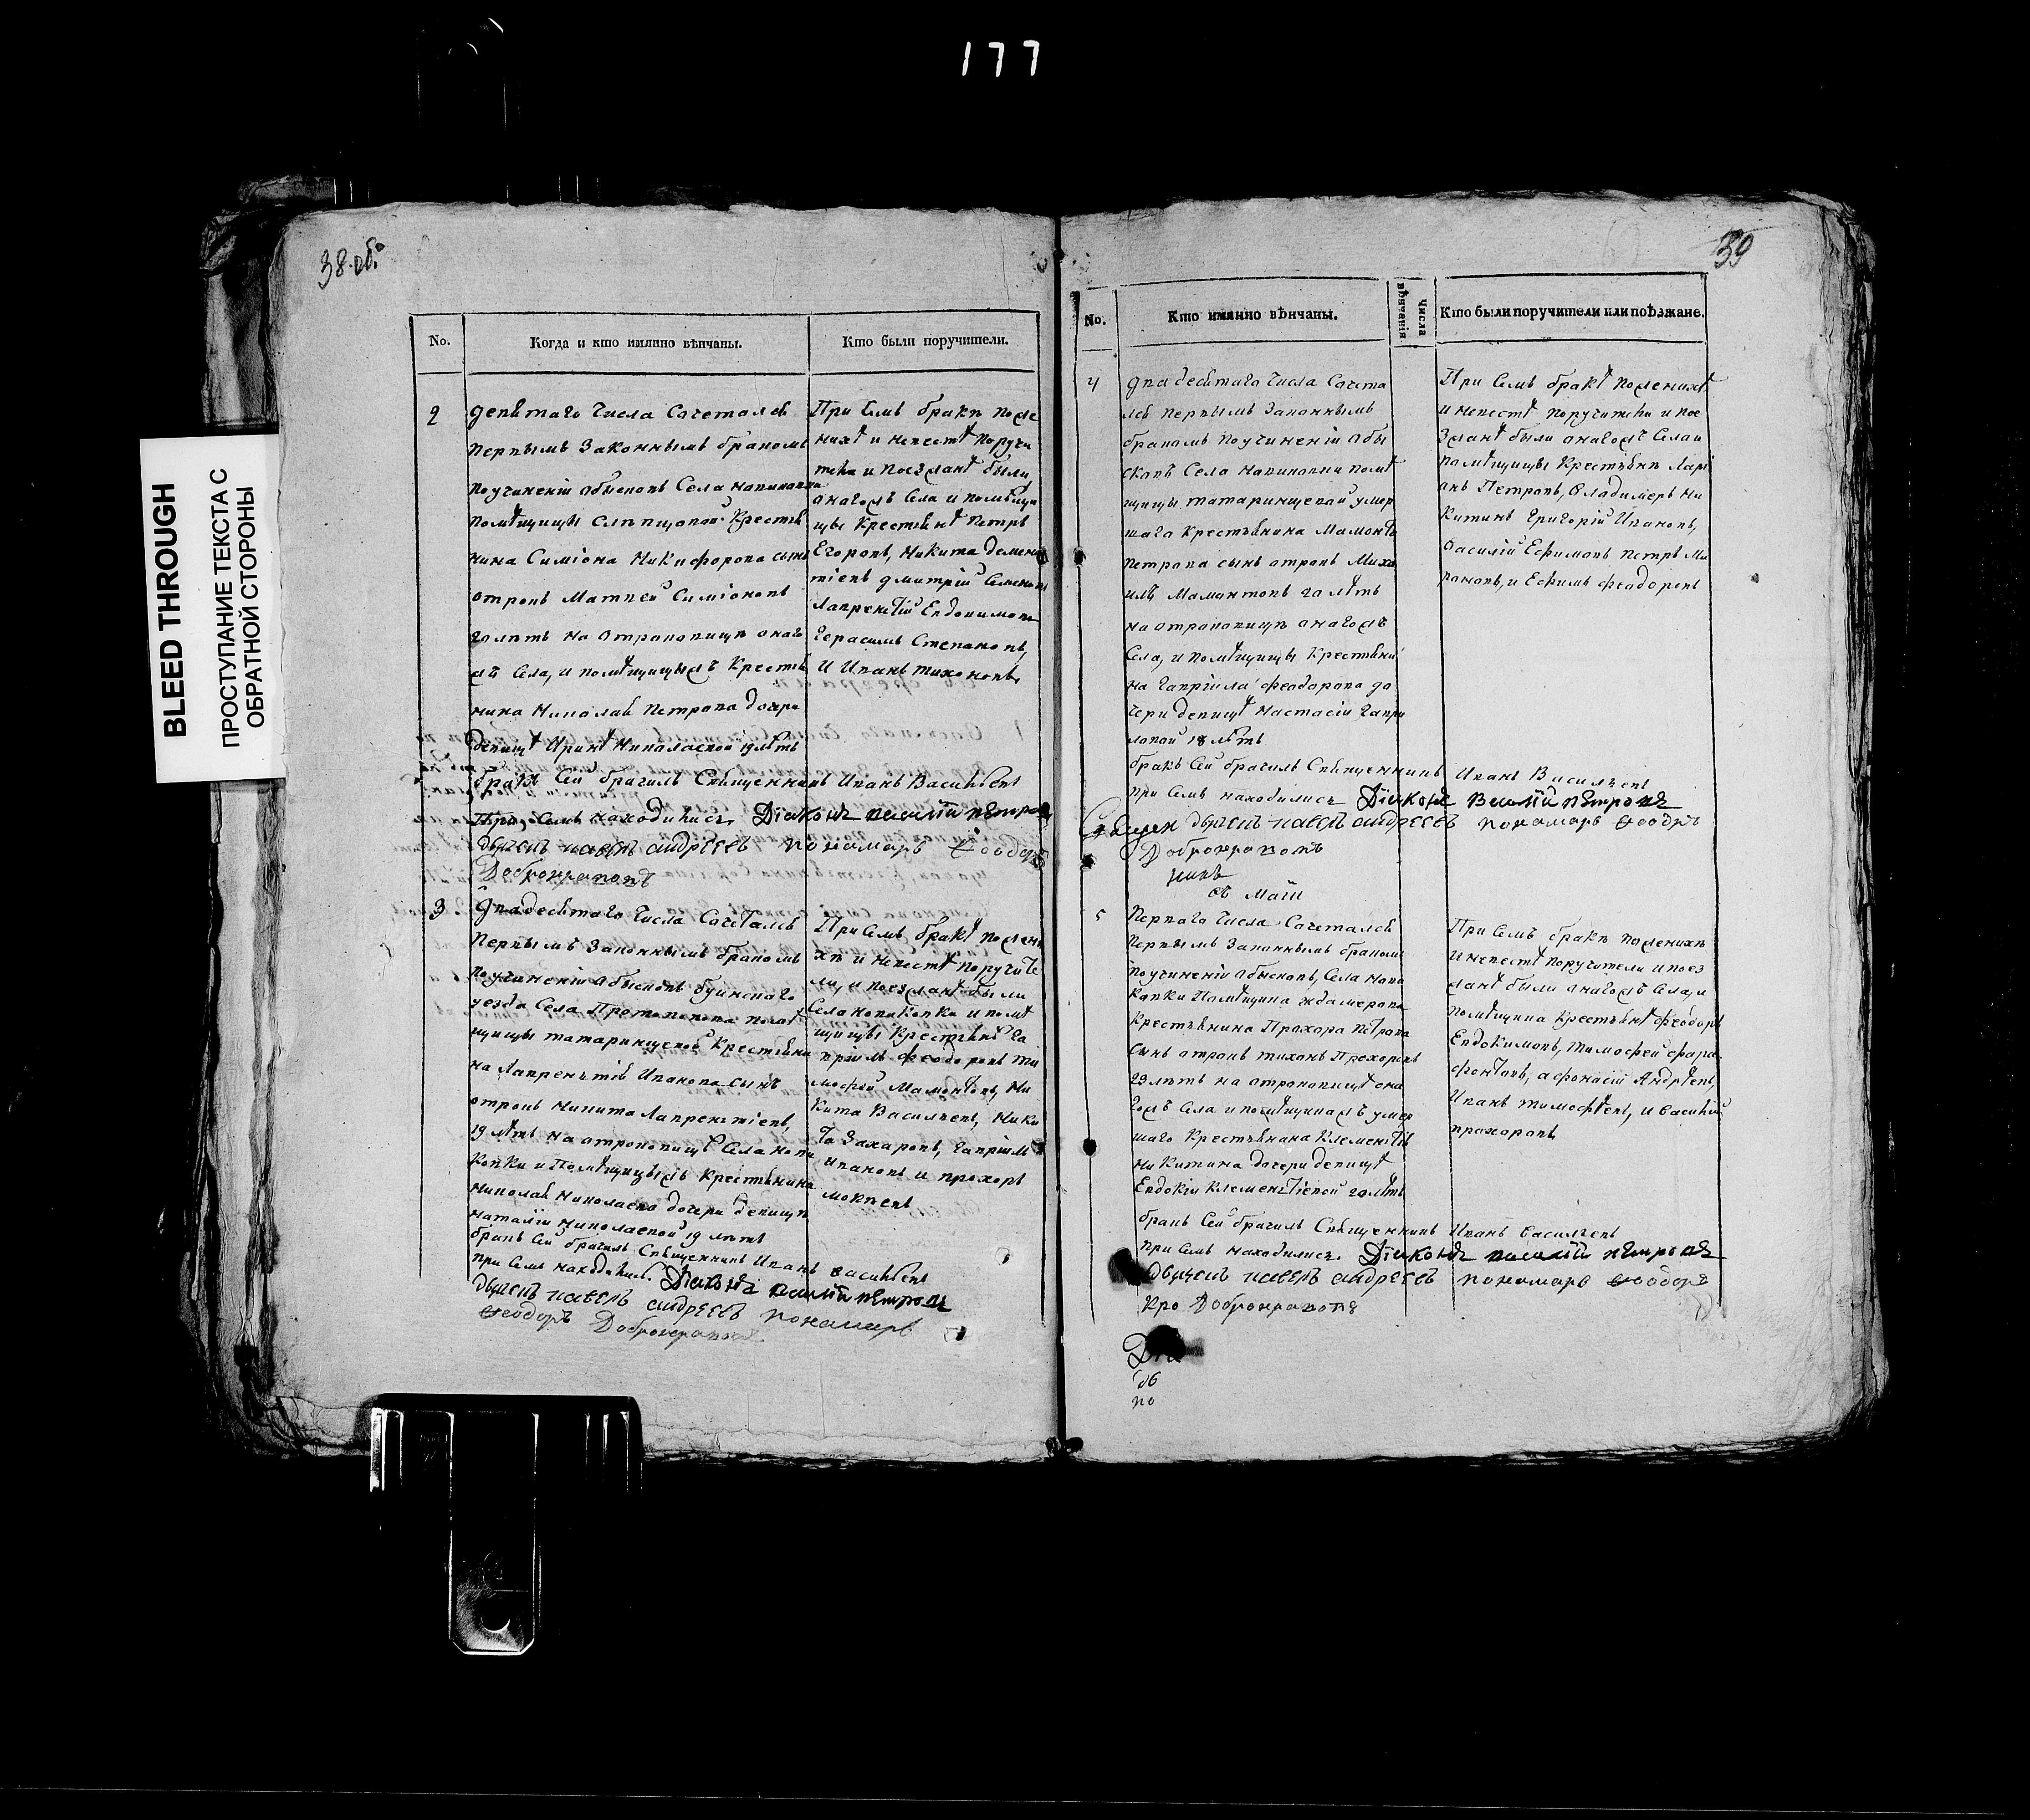 177
BLEED THROUGH
ПРОСТУПАНИЕ ТЕКСТА С
ОБРАТНОЙ СТОРОНЫ
38 об.
No.
Когда и кто имянно вѣнчаны.
Кто были поручители.
2
девятаго Числа Сочетался
Первымъ Законнымъ бракомъ
Поучиненiи обысковъ Села
Помѣщицы Крестья
нина Симiона Никифорова сынъ
отрокъ Матвей Симiоновъ
20 лѣтъ на отроковицѣ онаго
жъ Села, и помѣщицыжъ Крестья
нина Николая Петрова дочери
девицѣ Иринѣ Николаевой 19 лѣтъ
При Семъ бракѣ пожe
нихѣ и невестѣ Поручи
тели и поезжанѣ были
аногожъ Села и помѣщи
цы Крестьянѣ Петръ
Егоровъ, Никита Демен
тiевъ дмитрiй Семеновъ
Лаврентiй Евдокимовъ
Герасимъ Степановъ,
И Иванъ тихоновъ,
бракъ Сей брачилъ Священникъ Иванъ Васильевъ
При Семъ находились Дiаконъ василiй пѣтровъ
дьячекъ павелъ андреевъ пономарь Ѳеодоръ
Добронравовъ
3
Двадесятаго Числа Сочетался
Первымъ Законнымъ бракомъ
Поучиненiи Обысковъ буинскаго
уезда Села Протопопова помѣ
щицы татаринцевой Крестьяни
на Лаврентiя Иванова сынъ
отрокъ Никита Лаврентiевъ,
19 лѣтъ на отроковицѣ Села нови
ковки и Помѣщицыжъ Крестьянина
Николая Николаева дочери девицѣ
Наталiи Николаевой 19 лѣтъ
При Семъ бракѣ пожени
хѣ и невестѣ Поручите
ли, и поезжанѣ были
Села новиковки и помѣ
щицы Крестьянѣ Га
врiилъ Феодоровъ ти
мофей Мамонтовъ, Ни
кита Васильевъ, Ники
та Захаровъ, Гаврiилъ
Ивановъ и прохоръ
мокеевъ
бракъ Сей брачилъ Священникъ Иванъ васильевъ
при Семъ находились Дiаконъ василiй пѣтровъ
дьячекъ павелъ андреевъ пономарь
Ѳеодоръ Добронравовъ
39
No.
Кто имянно вѣнчаны.
Числа
вѣнчанiя
Кто были поручители или поѣзжане.
4
два десятаго Числа Сочета
лся первымъ Законнымъ
бракомъ поучиненiи обы
сковъ Села новиковки помѣ
щицы татаринцевой умер
шаго Крестьянина Мамонта
Петрова сынъ отрокъ Миха
илъ Мамантовъ 20 лѣтъ
на отроковицѣ аногожъ
Села, и помѣщицы Крестьяни
на Гаврiила феодорова до
чери девицѣ Настасiи Гаври
ловой 18 лѣтъ
При Семъ бракѣ поженихѣ
и невестѣ поручители и пое
зжанѣ были аногожъ Села и
помѣщицы Крестьянѣ Лари
онъ Петровъ, Владимеръ Ни
китинъ Григорiй Ивановъ,
Василiй Ефимовъ Петръ Ми
роновъ, и Ефимъ феодоровъ
бракъ Сей брачилъ Священникъ Иванъ Васильевъ
при Семъ находились Дiаконъ василiй пѣтровъ
дьячекъ павелъ андреевъ пономарь Ѳеодръ
Добронравовъ
въ Маiи
5
Перваго Числа Сочетался
Первымъ Законнымъ бракомъ
Поучиненiи обысковъ, Села нови
ковки Помѣщика ждамерова
Крестьянина Прохора Петрова
Сынъ отрокъ тихонъ Прохоровъ
23 лѣтъ на отроковицѣ она
гожъ Села и помѣщикажъ умер
шаго Крестьянина Клементiя
Никитина дочери девицѣ
Евдокiи Клементiевой 20 лѣтъ
При Семъ бракѣ поженихѣ
и невестѣ Поручители и поез
жанѣ были аногожъ Села, и
помѣщика Крестьянѣ феодоръ
Евдокимовъ, тимофей фара
фонтовъ, афонасiй Андрѣевъ,
Иванъ тимофѣевъ, и василiй
прохоровъ
бракъ Сей брачилъ Священникъ Иванъ васильевъ
при Семъ находились. Дiаконъ василiй пѣтровъ
дьячекъ павелъ андреевъ пономарь Ѳеодоръ
Добронравовъ
по